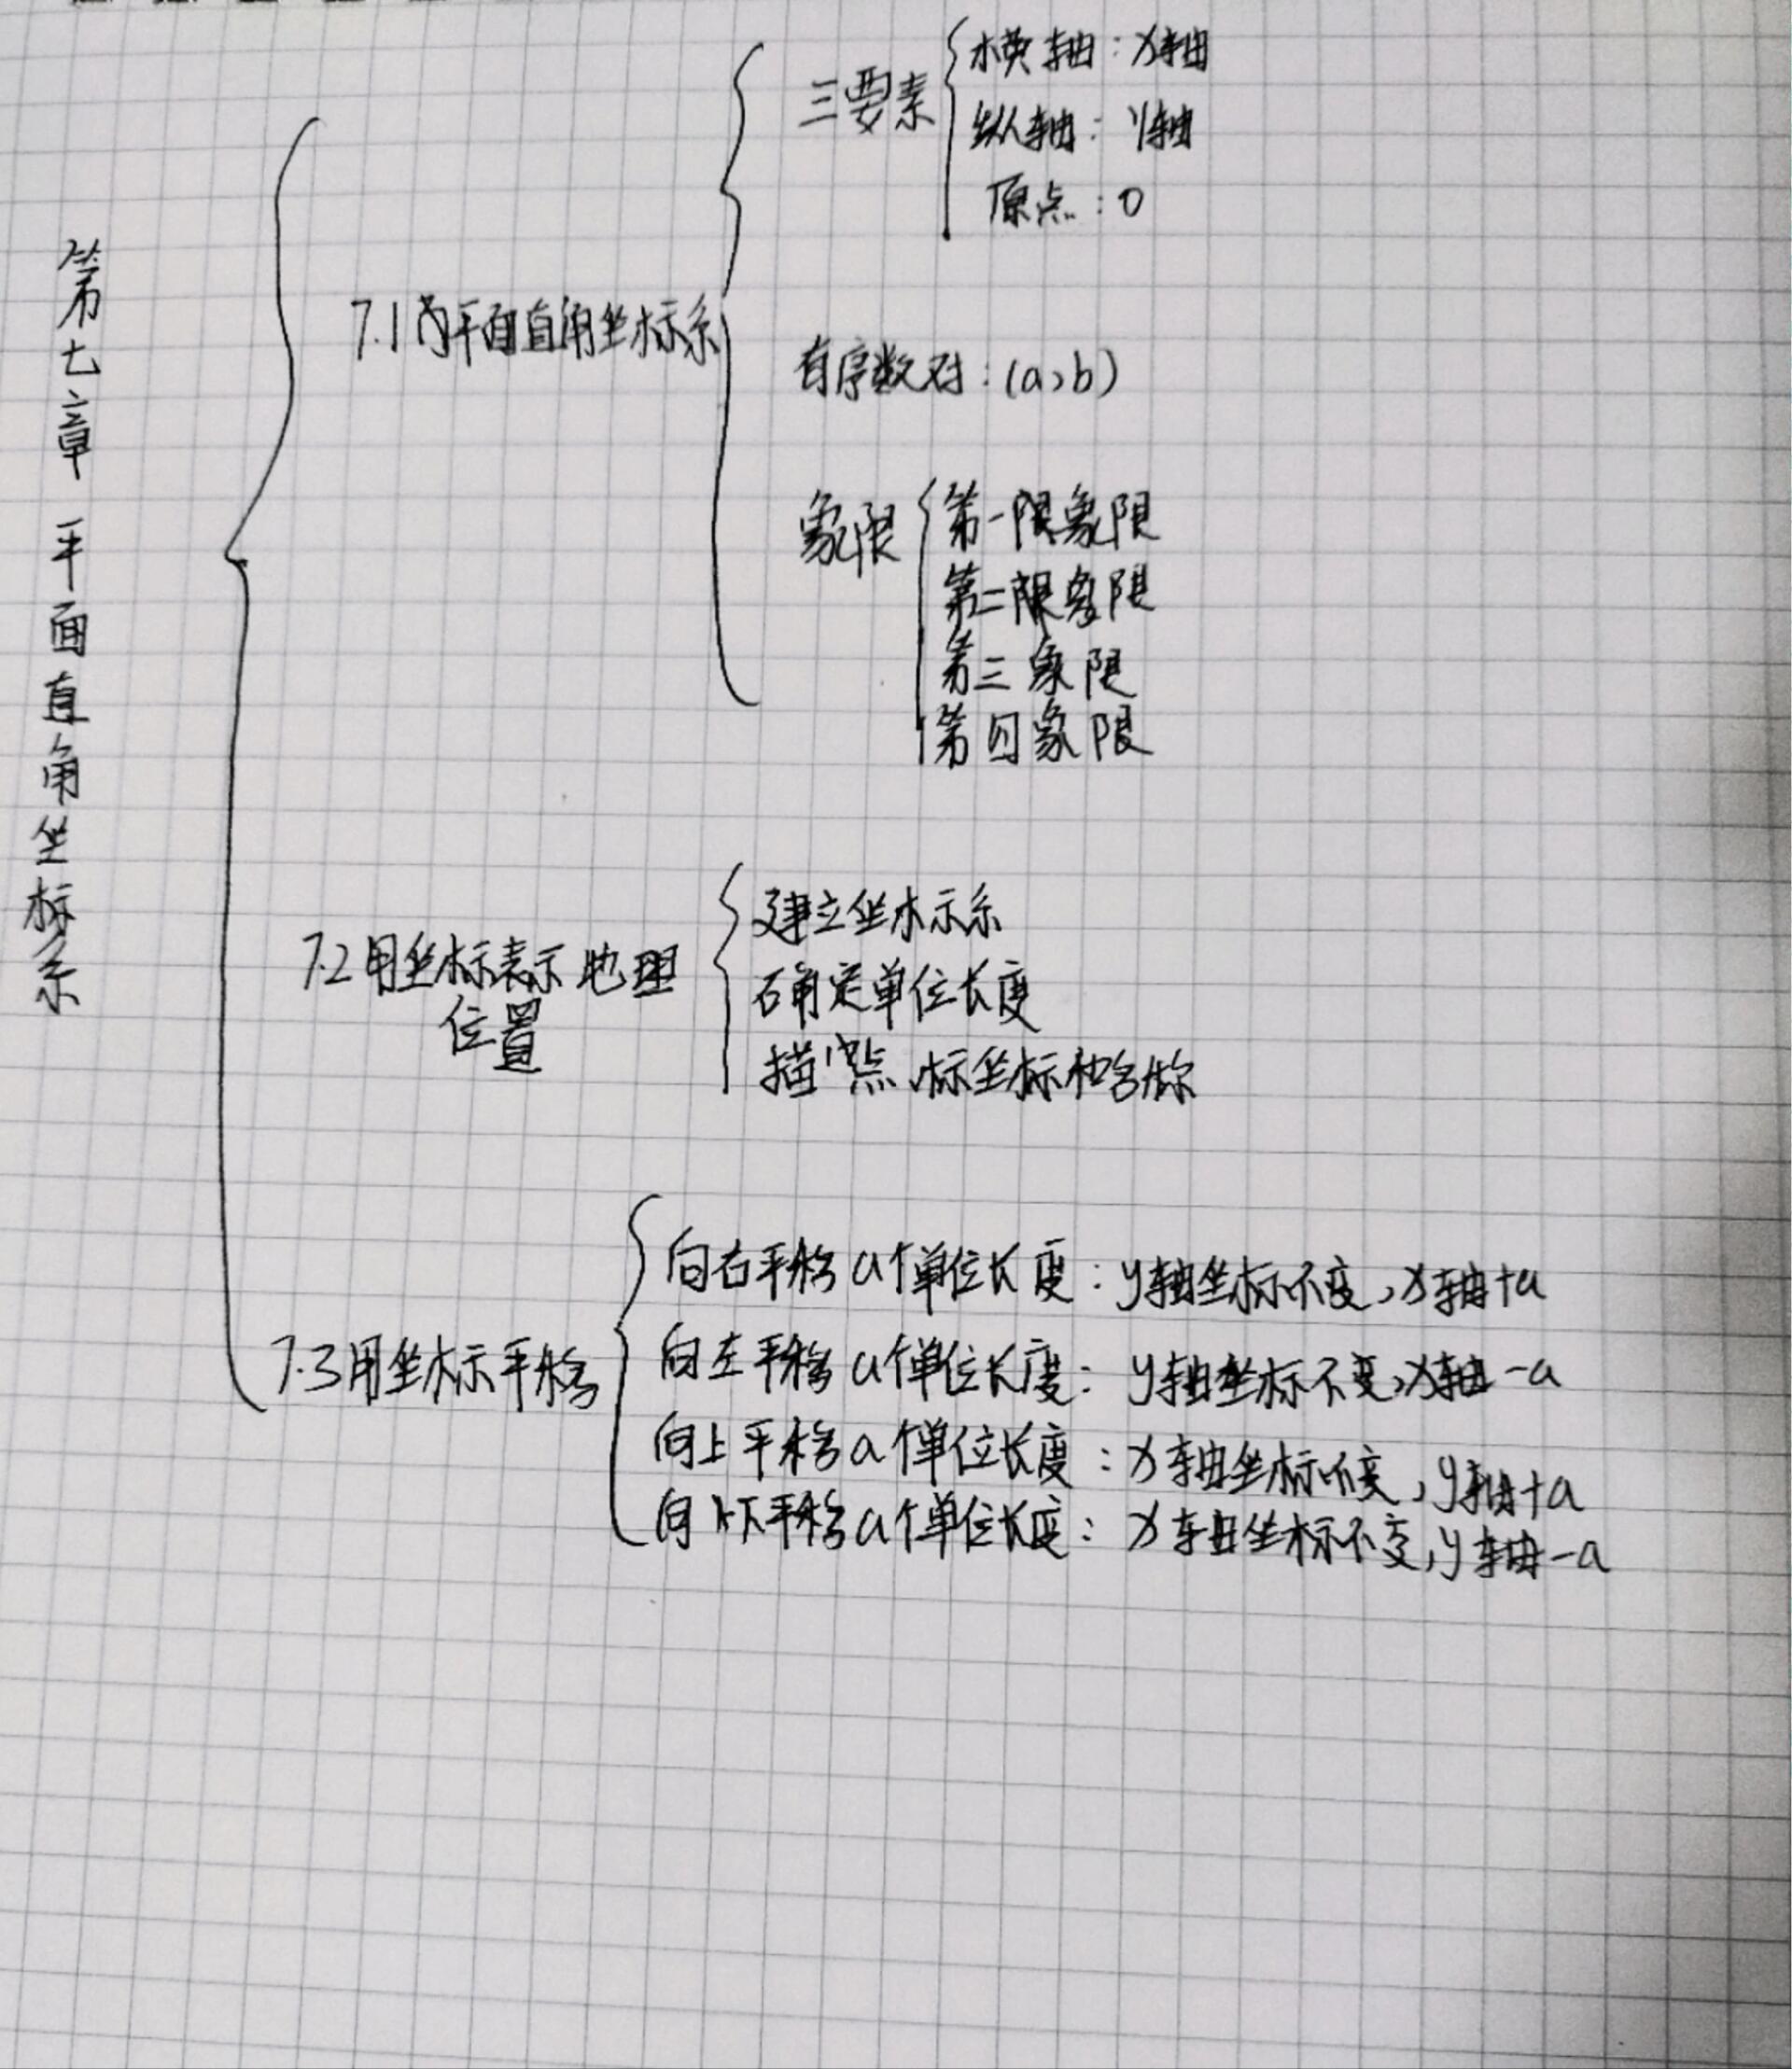 第七章 平面直角坐标系
7.1 平面直角坐标系
三要素
横轴：x轴
纵轴：y轴
原点：0
有序数对：(a,b)
象限
第一象限
第二象限
第三象限
第四象限
7.2 用坐标表示地理
位置
建立坐标系
确定单位长度
描点、标坐标和名称
7.3 用坐标平移
向右平移a个单位长度：y轴坐标不变，x轴+a
向左平移a个单位长度：y轴坐标不变，x轴-a
向上平移a个单位长度：x轴坐标不变，y轴+a
向下平移a个单位长度：x轴坐标不变，y轴-a